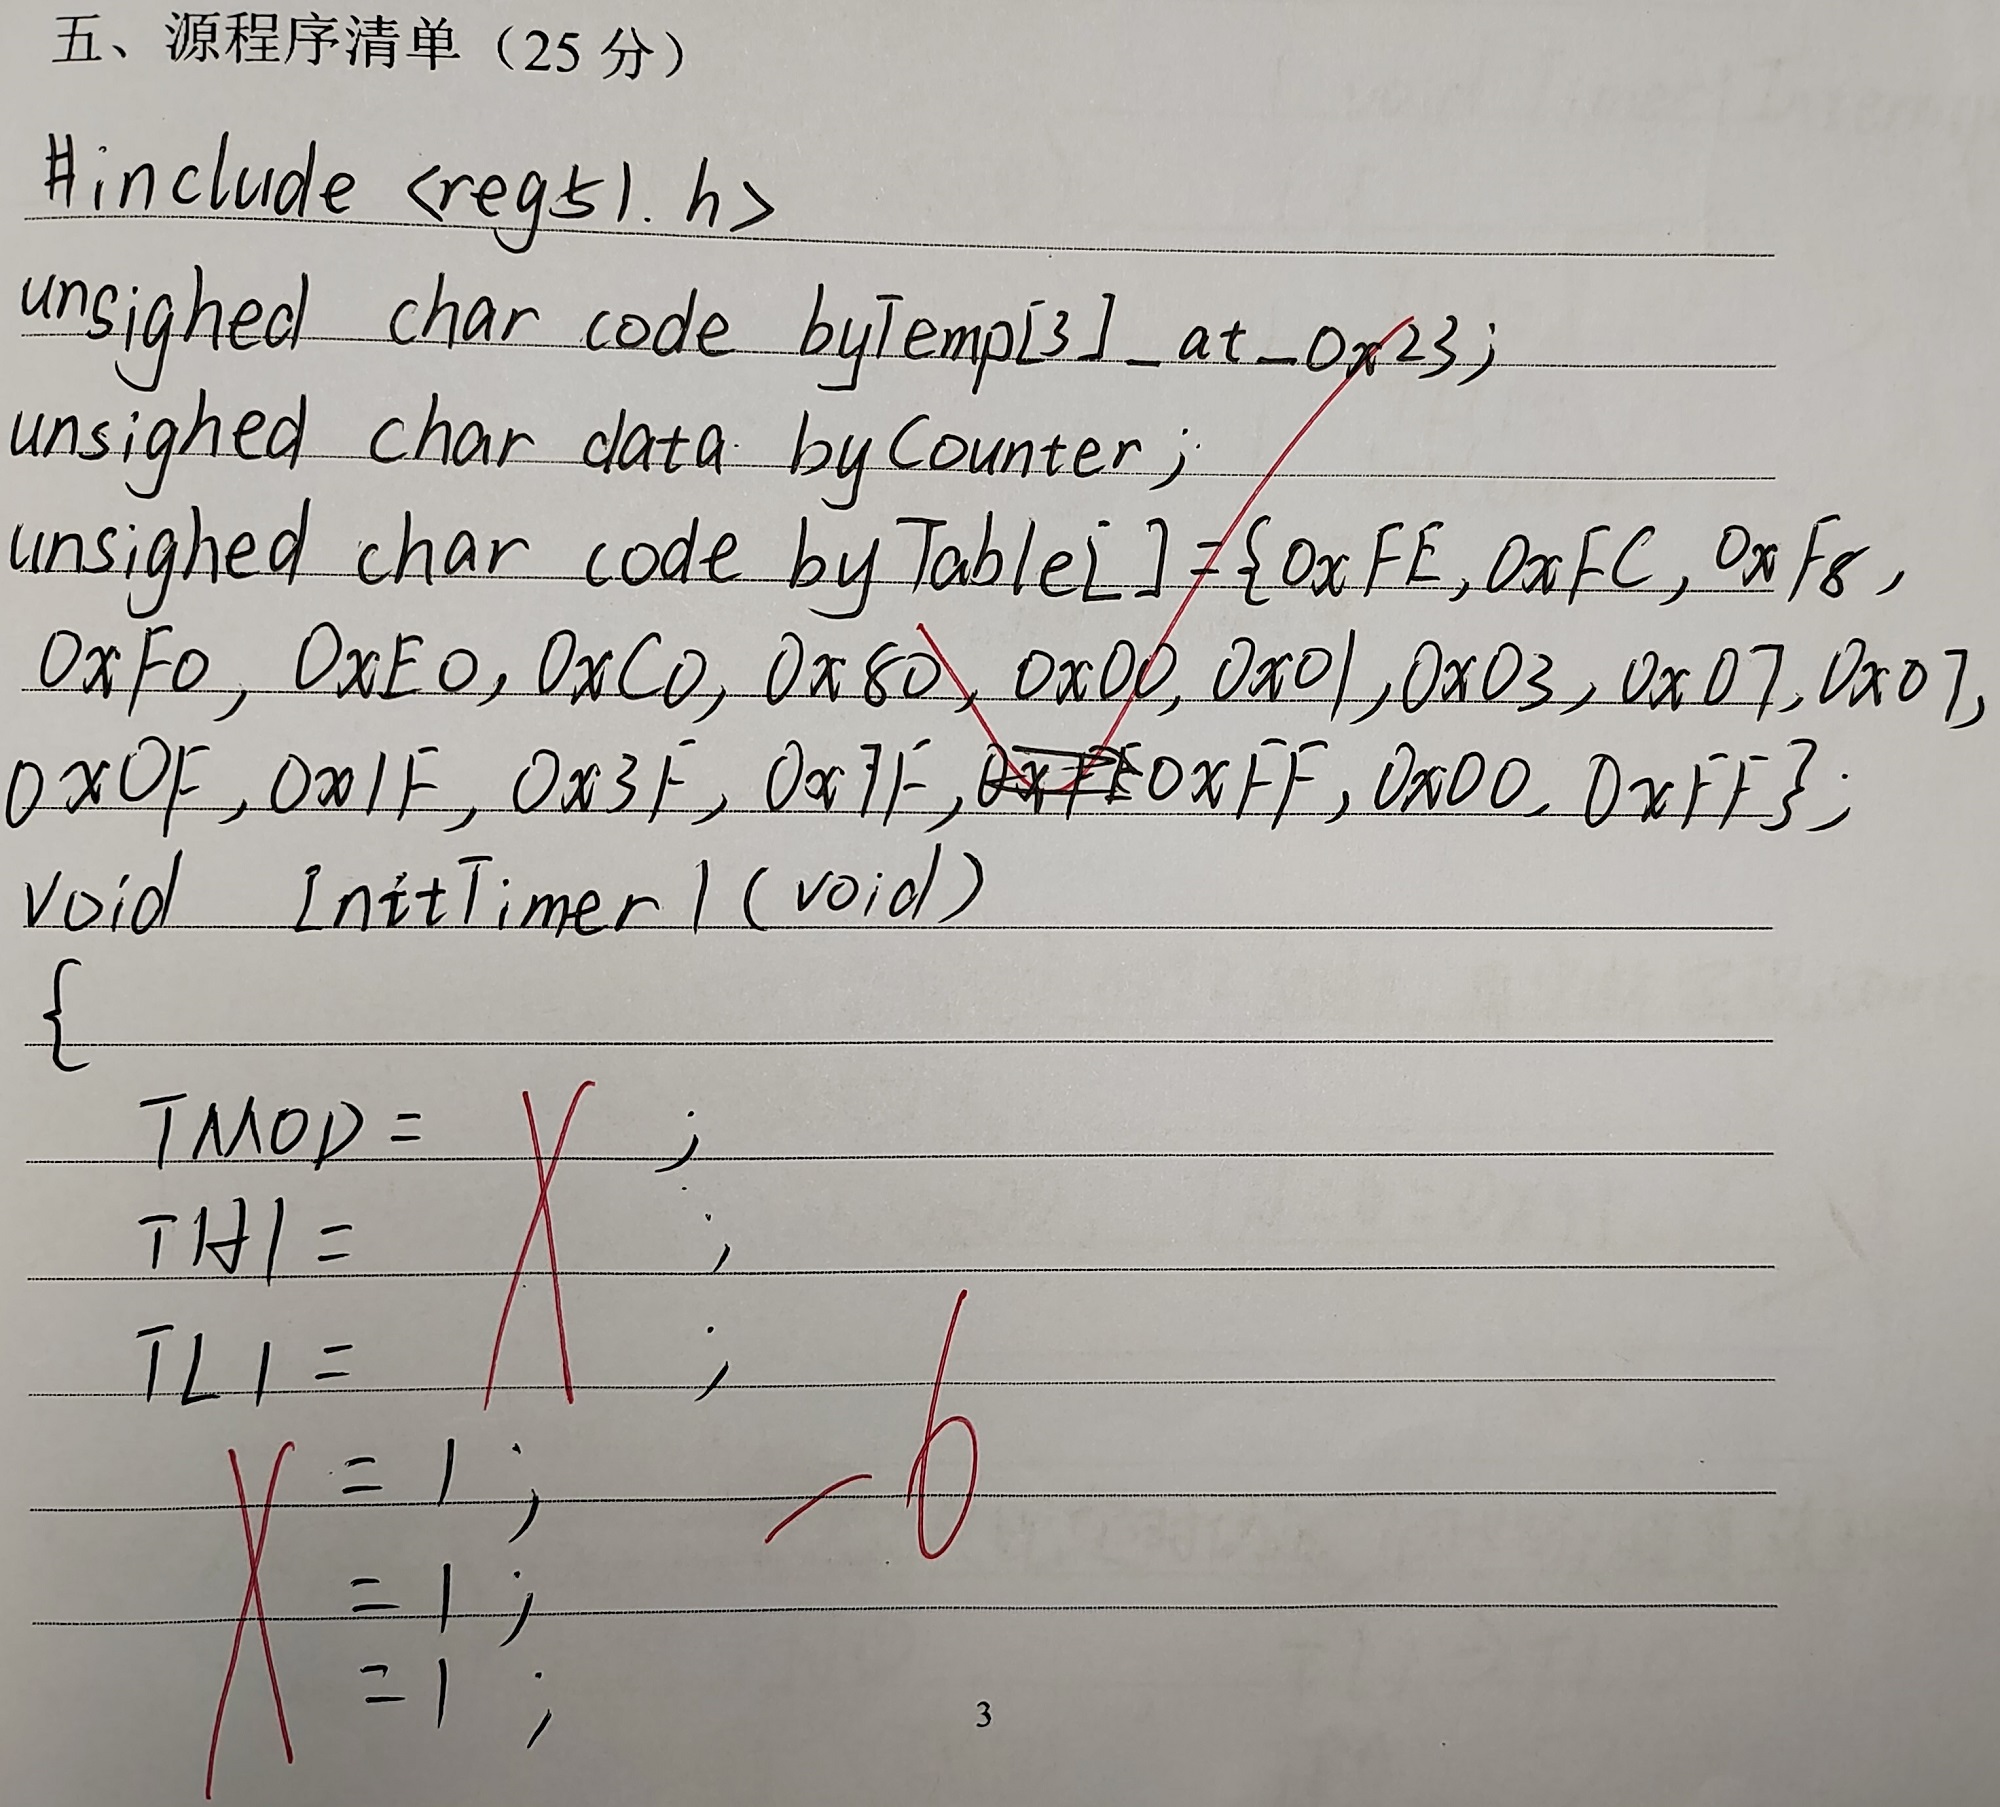 五、源程序清单（25 分）
#include <reg51.h>
unsighed char code byTemp[3]_at_0x23;
unsighed char data byCounter;
unsighed char code byTable[]={0xFE,0xFC,0xF8,
0xF0,0xE0,0xC0,0x80,0x00,0x01,0x03,0x07,0x07,
0x0F,0x1F,0x3F,0x7F,0xFF,0x00,0xFF};
void InitTimer1(void)
{
TMOD= ;
TH1= ;
TL1= ;
=1;
-6
=1;
=1;
3